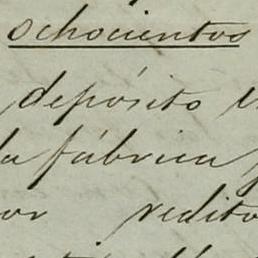 ochocientos
depósito
la fábrica
or redito